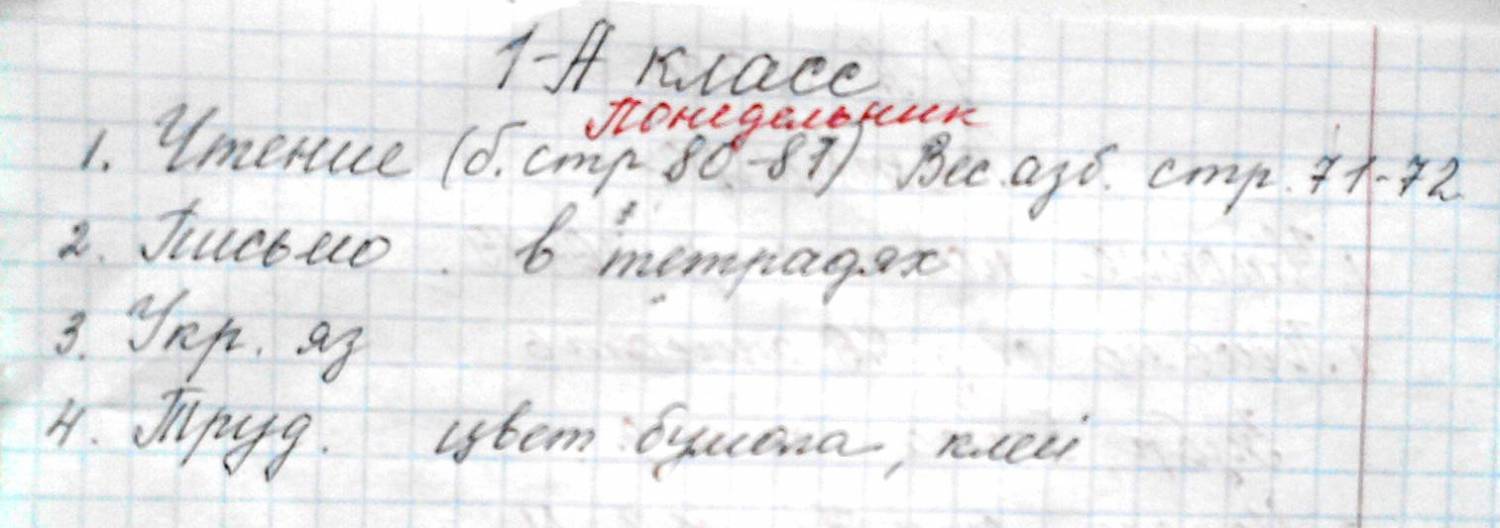 1-А класс
Понедельник
1. Чтение (б. стр 80-81) Вес. азб. стр. 71-72
2. Письмо в тетрадях
3. Укр. яз
4. Труд. цвет бумага, клей